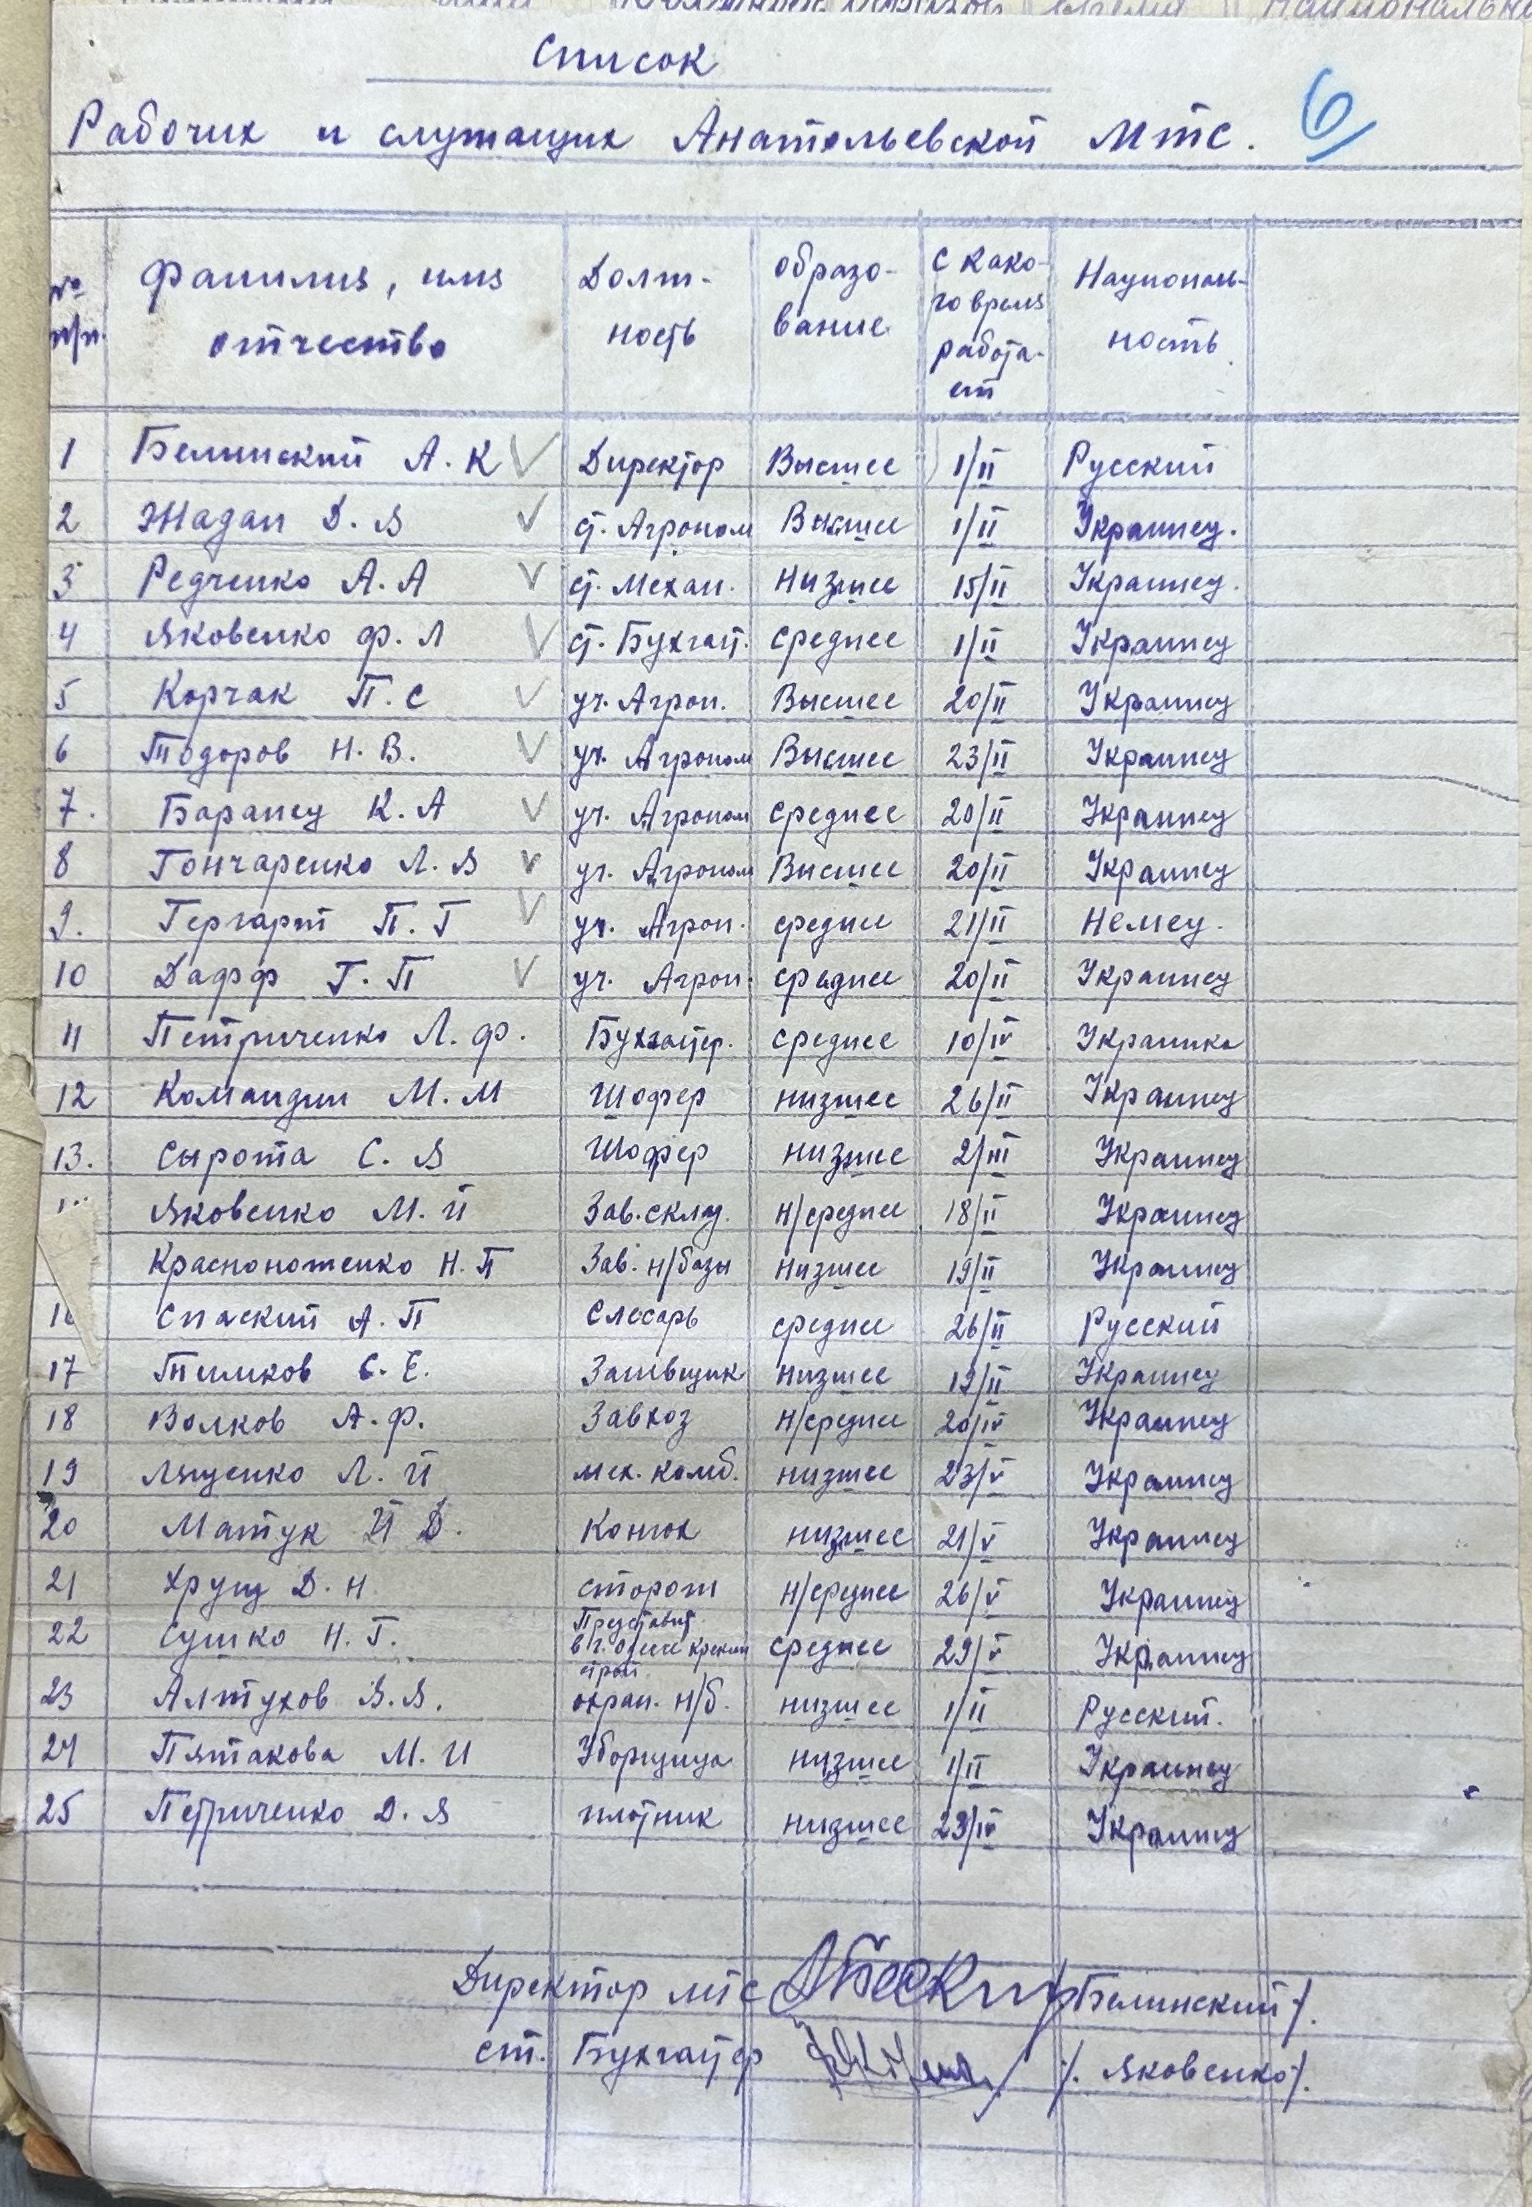 Список
6
Рабочих и служащих Анатольевской МТС.
№ п/п. Фамилия, имя отчество Должность Образование С какого время работает Национальность
1 Белинский А. К Директор Высшее 1/II Русский
2 Жадан Д. Я ст. Агроном Высшее 1/II Украинец.
3 Редченко А. А ст. Механ. низшее 15/II Украинец.
4 Яковенко Ф. Л ст. Бухгалт. среднее 1/II Украинец
5 Корчак П. С уч. Агрон. Высшее 20/II Украинец
6 Тодоров Н. В. уч. Агроном Высшее 23/II Украинец
7. Баранец К. А уч. Агроном среднее 20/II Украинец
8 Гончаренко Л. Я уч. Агроном Высшее 20/II Украинец
9. Гергарт П. Г уч. Агрон. среднее 21/II Немец.
10 Дафф Г. П уч. Агрон. среднее 20/II Украинец
11 Петриченко Л. Ф. Бухгалтер. среднее 10/IV Украинка
12 Командин М. М Шофер низшее 26/II Украинец
13. Сырота С. Я Шофер низшее 2/III Украинец
Яковенко М. И Зав. склад. н/среднее 18/II Украинец
Красноноженко Н. П Зав. н/базы низшее 19/II Украинец
16 Спаский А. П Слесарь среднее 26/II Русский
17 Тимков С. Е. низшее 19/II Украинец
18 Волков А. Ф. Завхоз н/среднее 20/IV Украинец
19 Ляшенко Л. И мех. комб. низшее 23/V Украинец
20 Матук И Д. Конюх низшее 21/V Украинец
21 Хрущ Д. Н сторож н/среднее 26/V Украинец
22 Сушко Н. Г. Представит. в г. Одессе строй среднее 29/V Украинец
23 Алтухов Я. Я. охран. н/б. низшее 1/II Русский.
24 Пятакова М. И Уборщица низшее 1/II Украинец
25 Петриченко Д. Я плотник низшее 29/IV Украинец
Директор МТС /Белинский/.
ст. Бухгалтер /. Яковенко/.